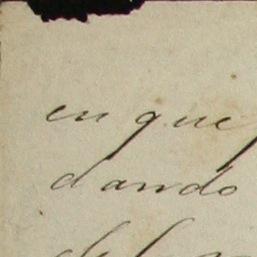 en que
dando